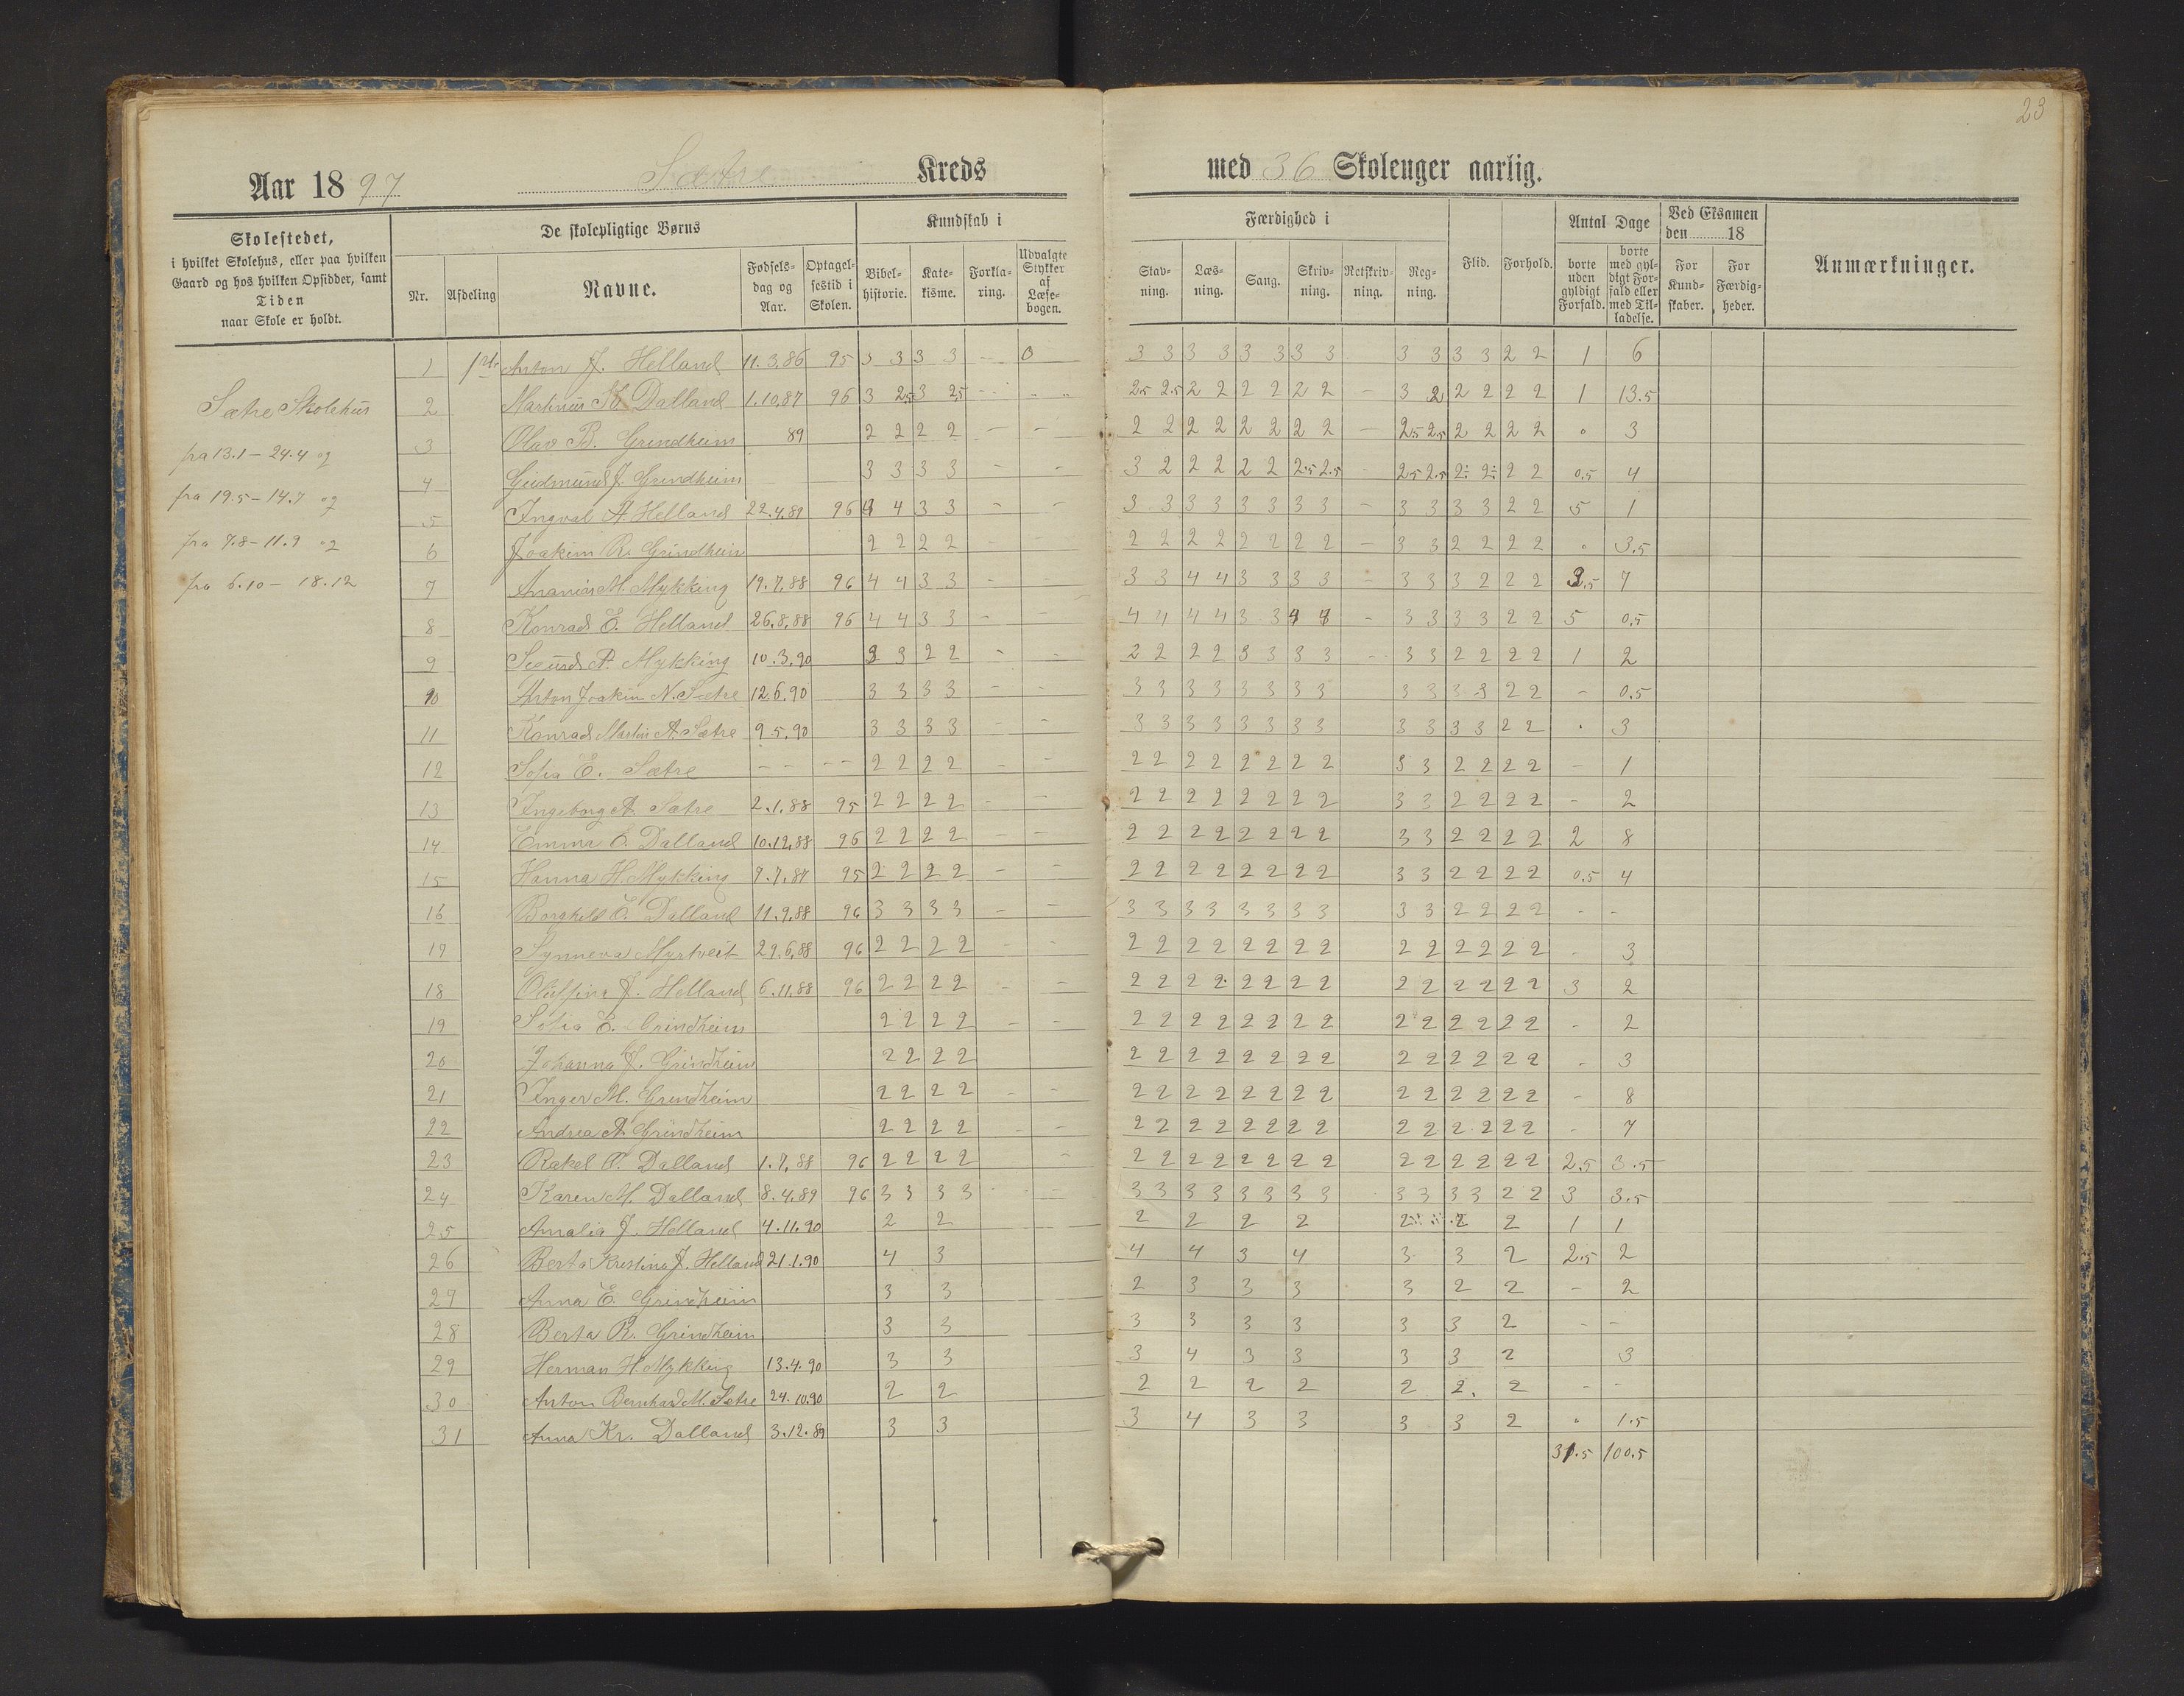 23
Aar 1897 Sætre Kreds med 36 Skoleuger aarlig.
Skolestedet, i hvilket Skolehus, eller paa hvilken Gaard og hos hvilken Opsidder, samt Tiden naar Skole er holdt.
De skolepligtige Børns
Nr. Afdeling Navne. Fødselsdag og Aar. Optagelsestid i Skolen.
Kundskab i
Bibelhistorie. Katekisme. Forklaring. Udvalgte Stykker af Læsebogen.
Færdighed i
Stavning. Læsning. Sang. Skrivning. Retskrivning. Regning.
Flid. Forhold.
Antal Dage
borte uden gyldigt Forfald. borte med gyldigt Forfald eller med Tilladelse.
Ved Eksamen den 18
For Kundskaber. For Færdigheder.
Anmærkninger.
Sætre Skolehus
fra 13.1 - 24.4 og
fra 19.5 - 14.7 og
fra 7.8 - 11.9 og
fra 6.10 - 18.12
1 Anton J. Helland 11.3.86 95 3 3 3 3 - 0 3 3 3 3 3 3 3 3 3 3 3 3 2 2 1 6
2 Martinus K. Dalland 1.10.87 96 3 2.5 3 2.5 - 2.5 2.5 2 2 2 2 2 2 - 3 2 2 2 2 2 1 13.5
3 Olav B. Grindheim 89 2 2 2 2 - - 2 2 2 2 2 2 2 2 - 2.5 2.5 2 2 2 2 0 3
4 Gudmund J. Grindheim 3 3 3 3 - - 3 2 2 2 2 2 2.5 2.5 - 2.5 2.5 2 2 2 2 0.5 4
5 Ingval A. Helland 22.4.89 96 4 4 3 3 - - 3 3 3 3 3 3 3 3 - 3 3 3 3 2 2 5 1
6 Joakim R. Grindheim 2 2 2 2 - - 2 2 2 2 2 2 2 2 - 3 3 2 2 2 2 0 3.5
7 Ananias M. Mykking 19.7.88 96 4 4 3 3 - 3 3 4 4 3 3 3 3 - 3 3 3 2 2 2 3.5 7
8 Konrad E. Helland 26.8.88 96 4 4 3 3 - - 4 4 4 4 3 3 4 4 - 3 3 3 3 2 2 5 0.5
9 Sjurd P. Mykking 10.3.90 3 3 2 2 - - 2 2 2 2 3 3 3 3 - 3 3 2 2 2 2 1 2
10 Anton Joakim N. Sætre 12.6.90 3 3 3 3 - - 3 3 3 3 3 3 3 3 3 3 3 3 2 2 - 0.5
11 Konrad Martin A. Sætre 9.5.90 3 3 3 3 - - 3 3 3 3 3 3 3 3 3 3 3 3 2 2 . 3
12 Sofia E. Sætre - - - - 2 2 2 2 - - 2 2 2 2 2 2 2 2 3 3 2 2 2 2 - 1
13 Ingeborg A. Sætre 2.1.88 95 2 2 2 2 - - 2 2 2 2 2 2 2 2 3 3 2 2 2 2 - 2
14 Emma O. Dalland 10.12.88 96 2 2 2 2 - - 2 2 2 2 2 2 2 2 3 3 2 2 2 2 2 8
15 Hanna H. Mykking 7.7.87 95 2 2 2 2 - - 2 2 2 2 2 2 2 2 3 3 2 2 2 2 0.5 4
16 Borghild E. Dalland 11.9.88 96 3 3 3 3 - - 3 3 3 3 3 3 3 3 3 3 2 2 2 2 - -
17 Synneva Myrtveit 29.6.88 96 2 2 2 2 - - 2 2 2 2 2 2 2 2 2 2 2 2 2 2 - 3
18 Oluffina J. Helland 6.11.88 96 2 2 2 2 - - 2 2 2 2 2 2 2 2 2 2 2 2 2 2 3 2
19 Sofia E. Grindheim 2 2 2 2 - - 2 2 2 2 2 2 2 2 2 2 2 2 2 2 - 2
20 Johanna J. Grindheim 2 2 2 2 2 2 2 2 2 2 2 2 2 2 2 2 2 2 - 3
21 Inger M. Grindheim 2 2 2 2 - - 2 2 2 2 2 2 2 2 2 2 2 2 2 2 - 8
22 Andrea A. Grindheim 2 2 2 2 - - 2 2 2 2 2 2 2 2 2 2 2 2 2 2 - 7
23 Rakel P. Dalland 1.7.88 96 2 2 2 2 - 2 2 2 2 2 2 2 2 2 2 2 2 2 2 2.5 3.5
24 Karen M. Dalland 8.4.89 96 3 3 3 3 - 3 3 3 3 3 3 3 3 3 3 3 3 2 2 3 3.5
25 Amalia J. Helland 4.11.90 2 2 2 2 2 2 2 2 2 1 1
26 Berta Kristina J. Helland 21.1.90 4 3 4 4 3 4 3 3 2 2.5 2
27 Anna E. Grindheim 3 3 2 3 3 3 3 2 2 - 2
28 Berta R. Grindheim 3 3 3 3 3 3 3 3 2 - -
29 Herman H. Mykking 13.4.90 3 3 3 4 3 3 3 3 2 3
30 Anton Bernhard M. Sætre 24.10.90 2 2 2 2 2 2 2 2. 2 - -
31 Anna Kr. Dalland 3.12.89 3 3 3 4 3 3 3 3 2 0 1.5
31.5 100.5